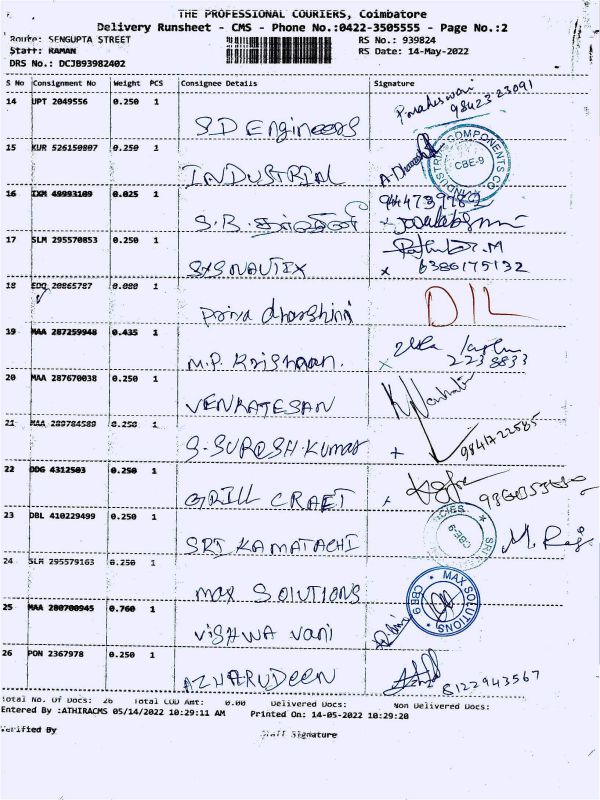 THE PROFESSIONAL COURIERS, Coimbatore
Delivery Runsheet - CMS - Phone No.:0422-3505555 - Page No.:2
Route: SENGUPTA STREET
RS No.: 939824
Staff: RAMAN
RS Date: 14-May-2022
DRS No.: DCJB93982402
S No Consignment No Weight PCS Consignee Details Signature
14 UPT 2049556 0.250 1 S.D Engineers
9842323091
15 KUR 526150807 0.250 1 INDUSTRIAL
INDUSTRIAL COMPONENTS CO. CBE-9
16 IXM 49993109 0.025 1 S.B.
17 SLM 295570853 0.250 1 SYSNAUTIX
x 6386175132
18 EDQ 20865787 0.080 1 Priya dharshini
DIL
19 MAA 287259948 0.435 1 M.P. Krishnan.
x 2238833
20 MAA 287670038 0.250 1 VENKATESAN
21 MAA 289784589 0.250 1 S.SURESH.Kumar
+ 9841722585
22 DDG 4312503 0.250 1 GRILL CRAET
23 DBL 410229499 0.250 1 SRI KAMATACHI
CBE-9
M. Raj
24 SLM 295579163 0.250 1 MAX SOLUTIONS
MAX SOLUTIONS CBE 9
25 MAA 280708945 0.760 1 VISHWA Vani
26 PON 2367978 0.250 1 AZHARUDEEN
8122943567
Total No. Of Docs: 26 Total COD Amt: 0.00 Delivered Docs: Non Delivered Docs:
Entered By :ATHIRACMS 05/14/2022 10:29:11 AM Printed On: 14-05-2022 10:29:20
Verified By Staff Signature